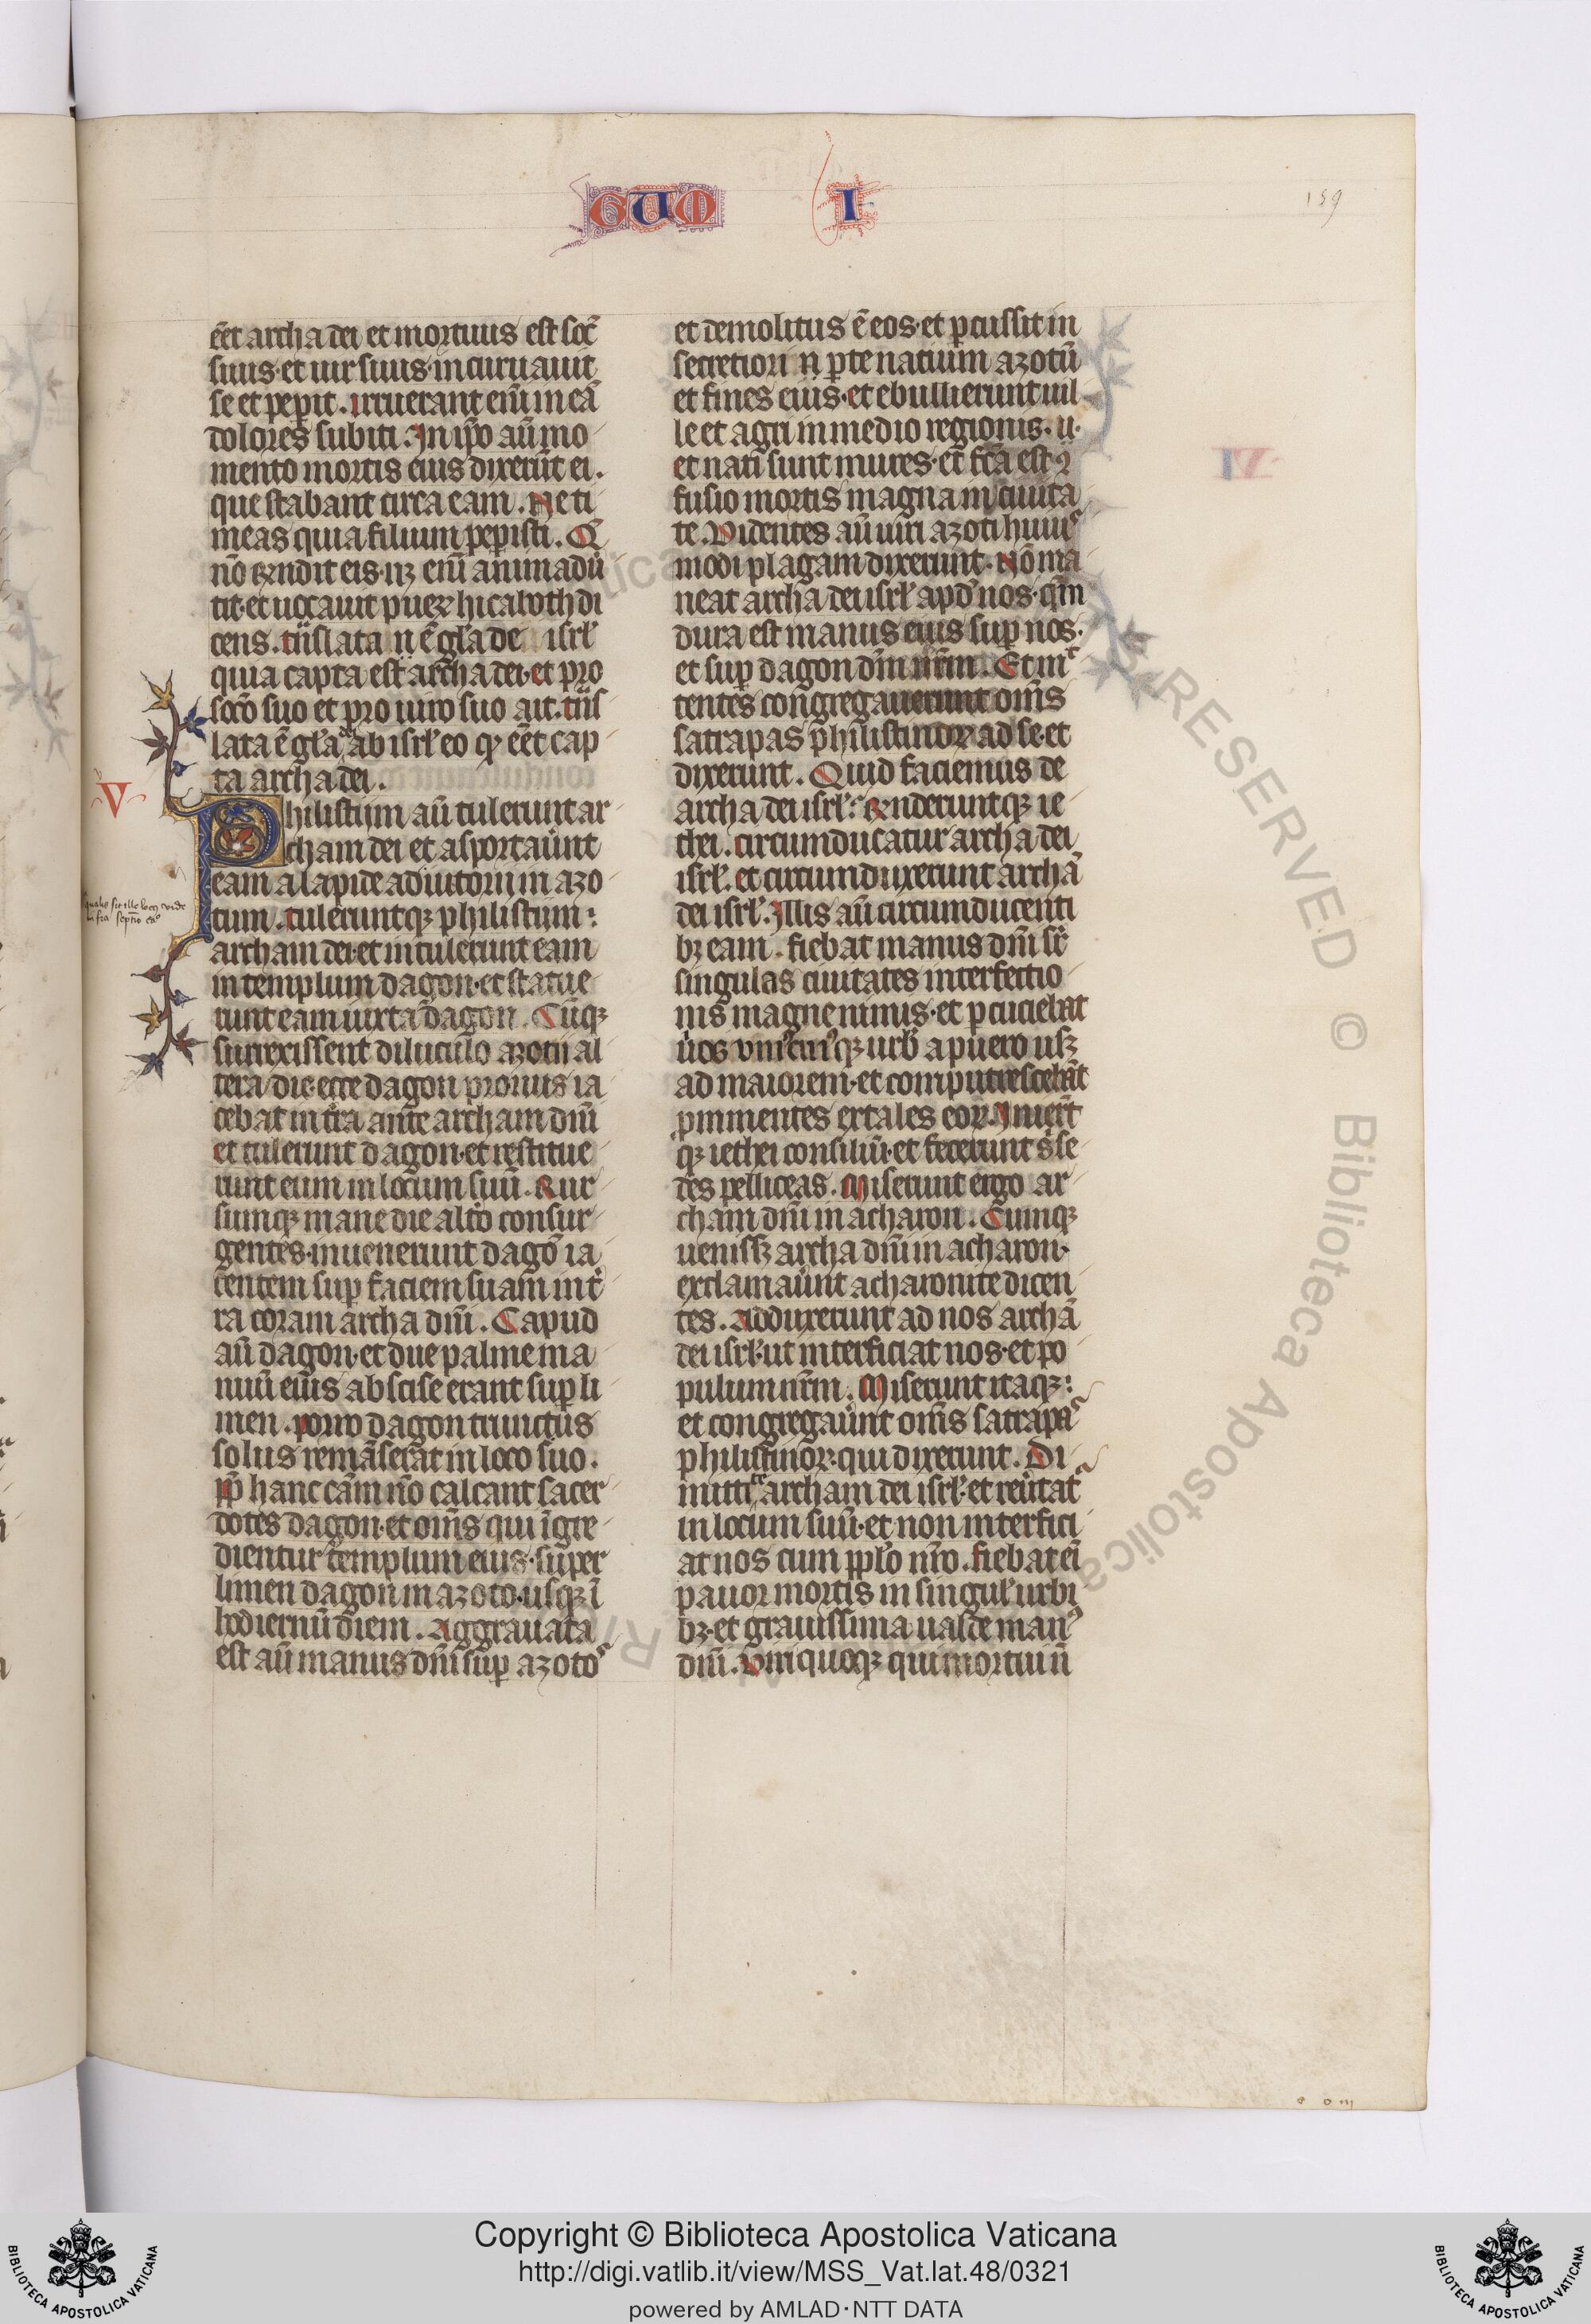 GUM I
159
eēt archa dei et mortuus est soc̄
suus·et uir suus·incuruauit
se et peperit. irruerant enī in eā
dolores subiti. In ip̄o aū mo
mento mortis eius dixerūt ei.
que stabant circa eam. Ne ti
meas quia filium peperisti. Q
nō rn̄dit eis·neqꝫ enī animaduer
tit·et uocauit puerꝝ hicaboth di
cens. trāslata n ē gl̄a de isrl̄
quia capta est archa dei·et pro
socō suo et pro uiro suo ait. trās
lata ē gl̄a ab isrl̄ eo qꝫ eēt cap
ta archa dei.
V
Philistijm aū tulerunt ar
cham dei et asportaūnt
eam a lapide adiutorij in azo
tum. tuleruntqꝫ philistijm:
archam dei·et intulerunt eam
in templum dagon·et statue
runt eam iuxta dagon. Cūqꝫ
surrexissent diluculo azotij al
tera die·ecce dagon pronus ia
cebat in tr̄a ante archam dn̄i
et tulerunt dagon·et restitue
runt eum in locum suū. Rur
sumqꝫ mane die altō consur
gentes·inuenerunt dagō ia
centem sup faciem suam in t̄
ra coram archa dn̄i. Capud
aū dagon·et due palme ma
nuū eius abscise erant sup li
men. porro dagon truncus
solus remāserat in loco suo.
pp̄ hanc cām nō calcant sacer
dotes dagon·et om̄s qui īgre
dientur templum eius·super
limen dagon in azoto·usqꝫ ī
hodiernū diem. Aggrauata
est aū manus dn̄i sup azotos
et demolitus ē eos·et pcussit in
secretiori n pte natium azotū
et fines eius·et ebullierunt uil
le et agri in medio regionis·ii·
et nati sunt mures·et fcā est ꝯ
fusio mortis magna in ciuita
te. Videntes aū uiri azoti huiuꝰ
modi plagam dixerunt. Nō ma
neat archa dei isrl̄ apd̄ nos·qm̄
dura est manus eius sup nos·
et sup dagon dm̄ nr̄m. Et mit
tentes congregauerunt om̄s
satrapas philistinorꝝ ad se·et
dixerunt. Quid faciemus de
archa dei isrl̄: Rn̄deruntqꝫ ie
thei. circumducatur archa dei
isrl̄. et circumduxerunt archā
dei isrl̄. Illis aū circumducenti
bꝫ eam. fiebat manus dn̄i p̄
singulas ciuitates interfectio
nis magne nimis·et pcuciebat
uiros vniꝰcuiꝰqꝫ urb̄ a puero usqꝫ
ad maiorem·et computrescebāt
prominentes extales eorꝝ. Inierūt
qꝫ iethei consiliū·et fecerunt s̄ se
des pelliceas. Miserunt ergo ar
cham dn̄i in acharon. Cumqꝫ
uenissꝫ archa dn̄i in acharon·
exclamaūnt acharonite dicen
tes. Adduxerunt ad nos archā
dei isrl̄·ut interficiat nos·et po
pulum nr̄m. Miserunt itaqꝫ:
et congregaūnt om̄s satrapas
philistinorꝝ·qui dixerunt. Di
mittite archam dei isrl̄·et reūtat
in locum suū·et non interfici
at nos cum pplo nr̄o. fiebat eī
pauor mortis in singul̄ urbi
bꝫ·et grauissima ualde manꝰ
dn̄i. Viri quoqꝫ qui mortui n̄
RESERVED © Biblioteca Apostolica
Copyright © Biblioteca Apostolica Vaticana
http://digi.vatlib.it/view/MSS_Vat.lat.48/0321
powered by AMLAD·NTT DATA
BIBLIOTECA APOSTOLICA VATICANA
BIBLIOTECA APOSTOLICA VATICANA